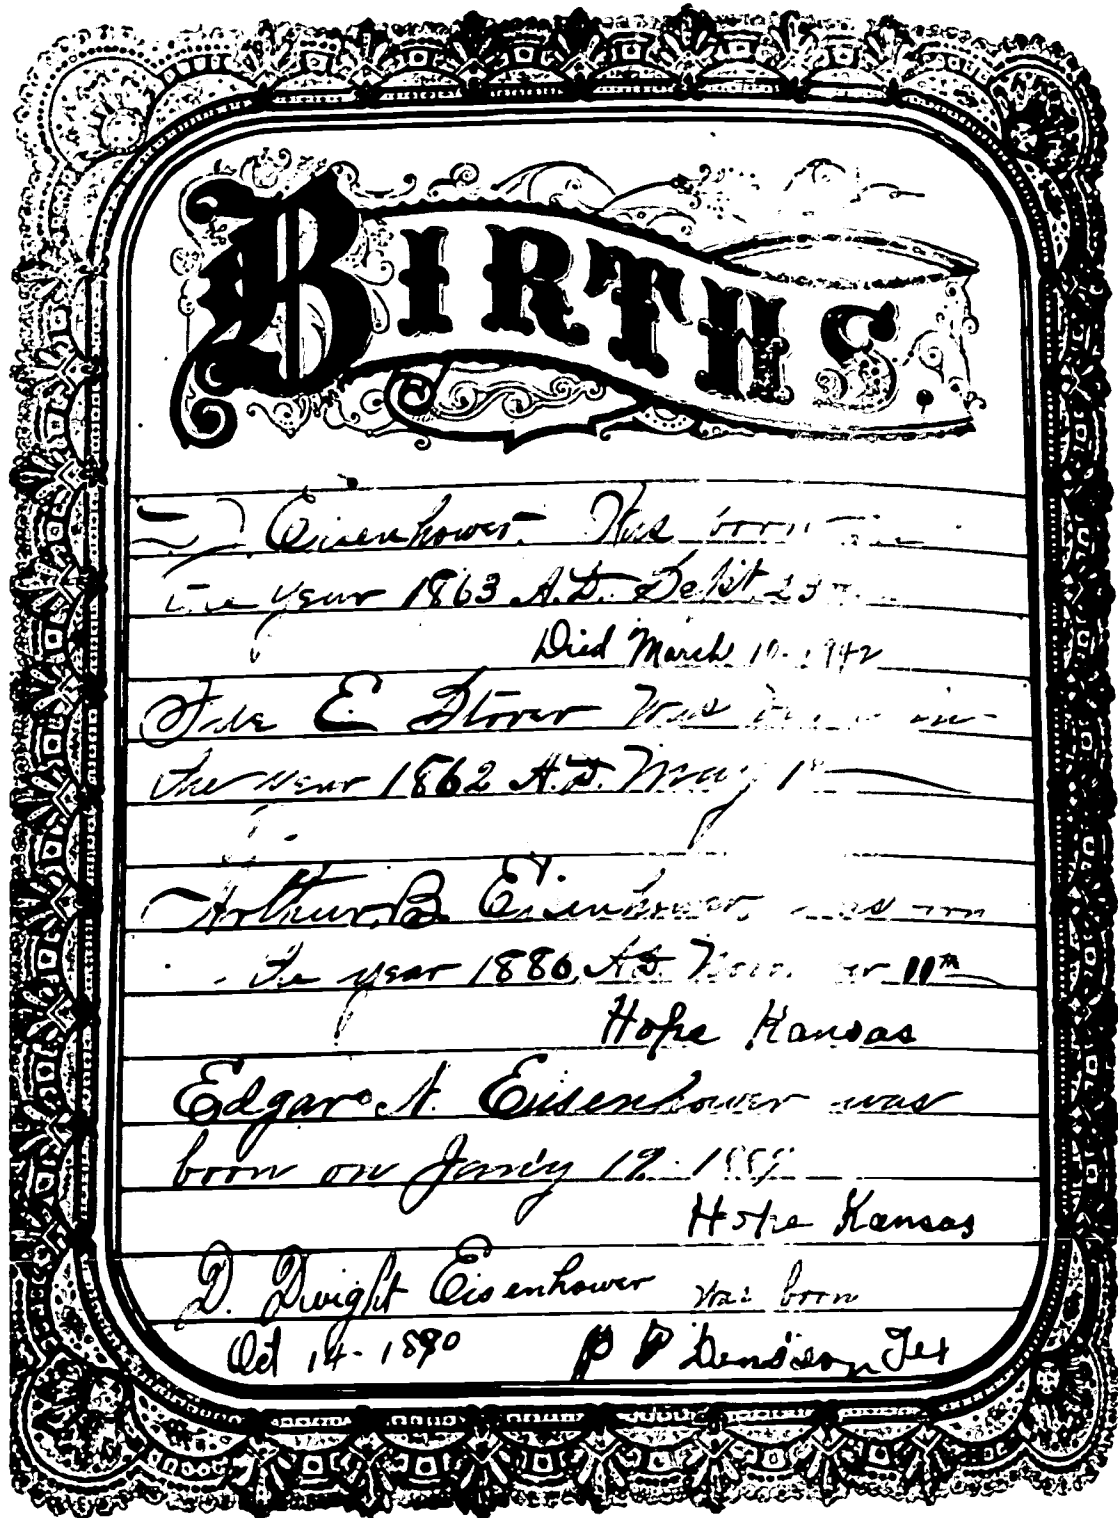 BIRTHS
D J Eisenhower Was born in
the year 1863 A.D. Sept. 23
Died March 10 1942
Ida E Stover Was in
the year 1862 A.D. May 1st
Arthur. B. Eisenhower was born
the year 1886. A.D. November 11th
Hope Kansas
Edgar. N. Eisenhower was
born on Jan'y 19. 1889
Hope Kansas
D. Dwight Eisenhower was born
Oct 14 - 1890 Denison Tex